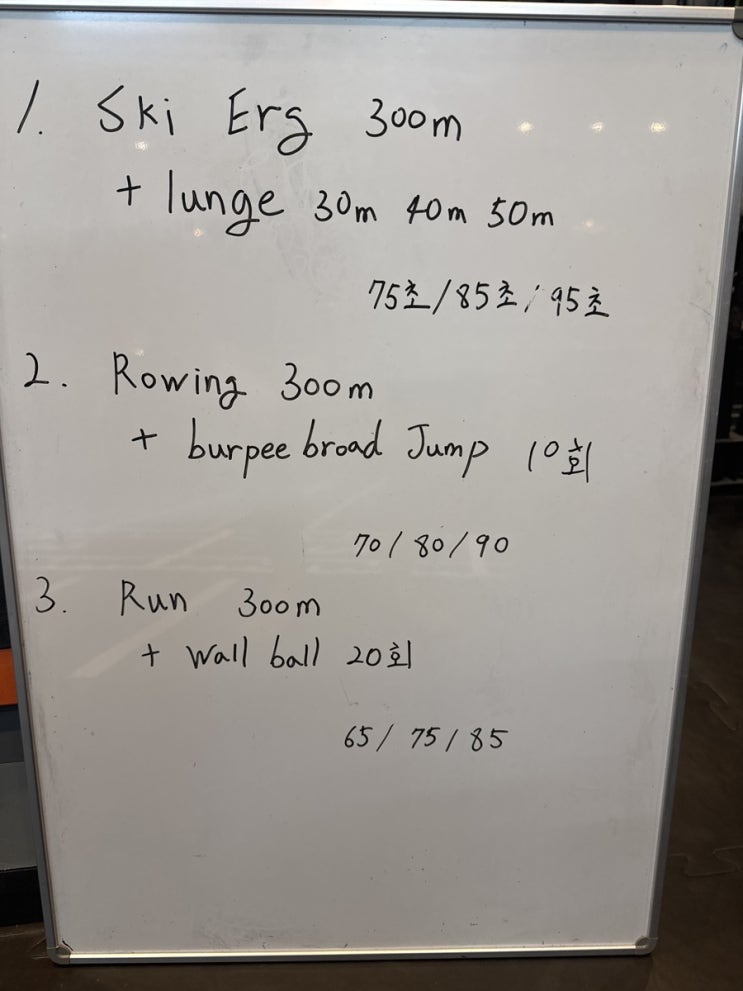 1. Ski Erg 300m
+ lunge 30m 40m 50m
75초/85초/95초
2. Rowing 300m
+ burpee broad Jump 10회
70/80/90
3. Run 300m
+ wall ball 20회
65/75/85